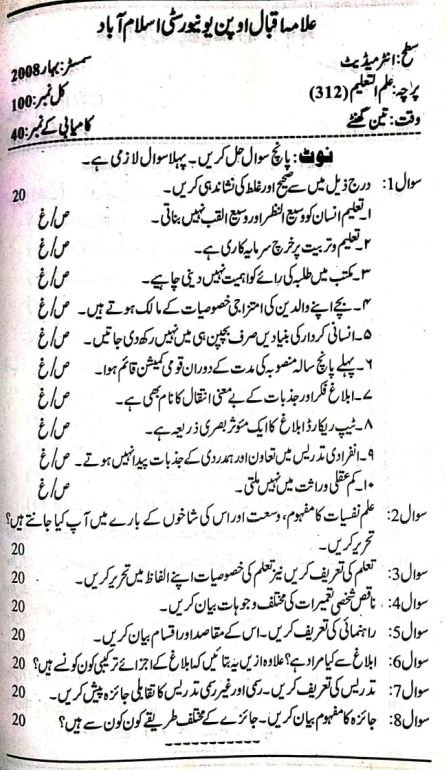 علامہ اقبال اوپن یونیورسٹی اسلام آباد
سطح: انٹرمیڈیٹ سمسٹر: بہار 2008
پرچہ: علم التعلیم (312) کل نمبر: 100
وقت: تین گھنٹے کامیابی کے نمبر: 40
نوٹ: پانچ سوال حل کریں۔ پہلا سوال لازمی ہے۔
سوال 1: درج ذیل میں سے صحیح اور غلط کی نشاندہی کریں۔ 20
۱۔ تعلیم انسان کو وسیع النظر اور وسیع القب نہیں بناتی۔ ص/غ
۲۔ تعلیم و تربیت پر خرچ سرمایہ کاری ہے۔ ص/غ
۳۔ مکتب میں طلبہ کی رائے کو اہمیت نہیں دینی چاہیے۔ ص/غ
۴۔ بچے اپنے والدین کی امتزاجی خصوصیات کے مالک ہوتے ہیں۔ ص/غ
۵۔ انسانی کردار کی بنیادیں صرف بچپن ہی میں نہیں رکھ دی جاتیں۔ ص/غ
۶۔ پہلے پانچ سالہ منصوبہ کی مدت کے دوران قومی کمیشن قائم ہوا۔ ص/غ
۷۔ ابلاغ فکر اور جذبات کے بے معنی انتقال کا نام بھی ہے۔ ص/غ
۸۔ ٹیپ ریکارڈ ابلاغ کا ایک مؤثر بصری ذریعہ ہے۔ ص/غ
۹۔ انفرادی تدریس میں تعاون اور ہمدردی کے جذبات پیدا نہیں ہوتے۔ ص/غ
۱۰۔ کم عقلی وراثت میں نہیں ملتی۔ ص/غ
سوال 2: علم نفسیات کا مفہوم، وسعت اور اس کی شاخوں کے بارے میں آپ کیا جانتے ہیں؟
تحریر کریں۔ 20
سوال 3: تعلم کی تعریف کریں نیز تعلم کی خصوصیات اپنے الفاظ میں تحریر کریں۔ 20
سوال 4: ناقص شخصی تعمیرات کی مختلف وجوہات بیان کریں۔ 20
سوال 5: راہنمائی کی تعریف کریں۔ اس کے مقاصد اور اقسام بیان کریں۔ 20
سوال 6: ابلاغ سے کیا مراد ہے؟ علاوہ ازیں یہ بتائیں کہ ابلاغ کے اجزائے ترکیبی کون کونسے ہیں؟ 20
سوال 7: تدریس کی تعریف کریں۔ رسمی اور غیر رسمی تدریس کا تقابلی جائزہ پیش کریں۔ 20
سوال 8: جائزہ کا مفہوم بیان کریں۔ جائزے کے مختلف طریقے کون کون سے ہیں؟ 20